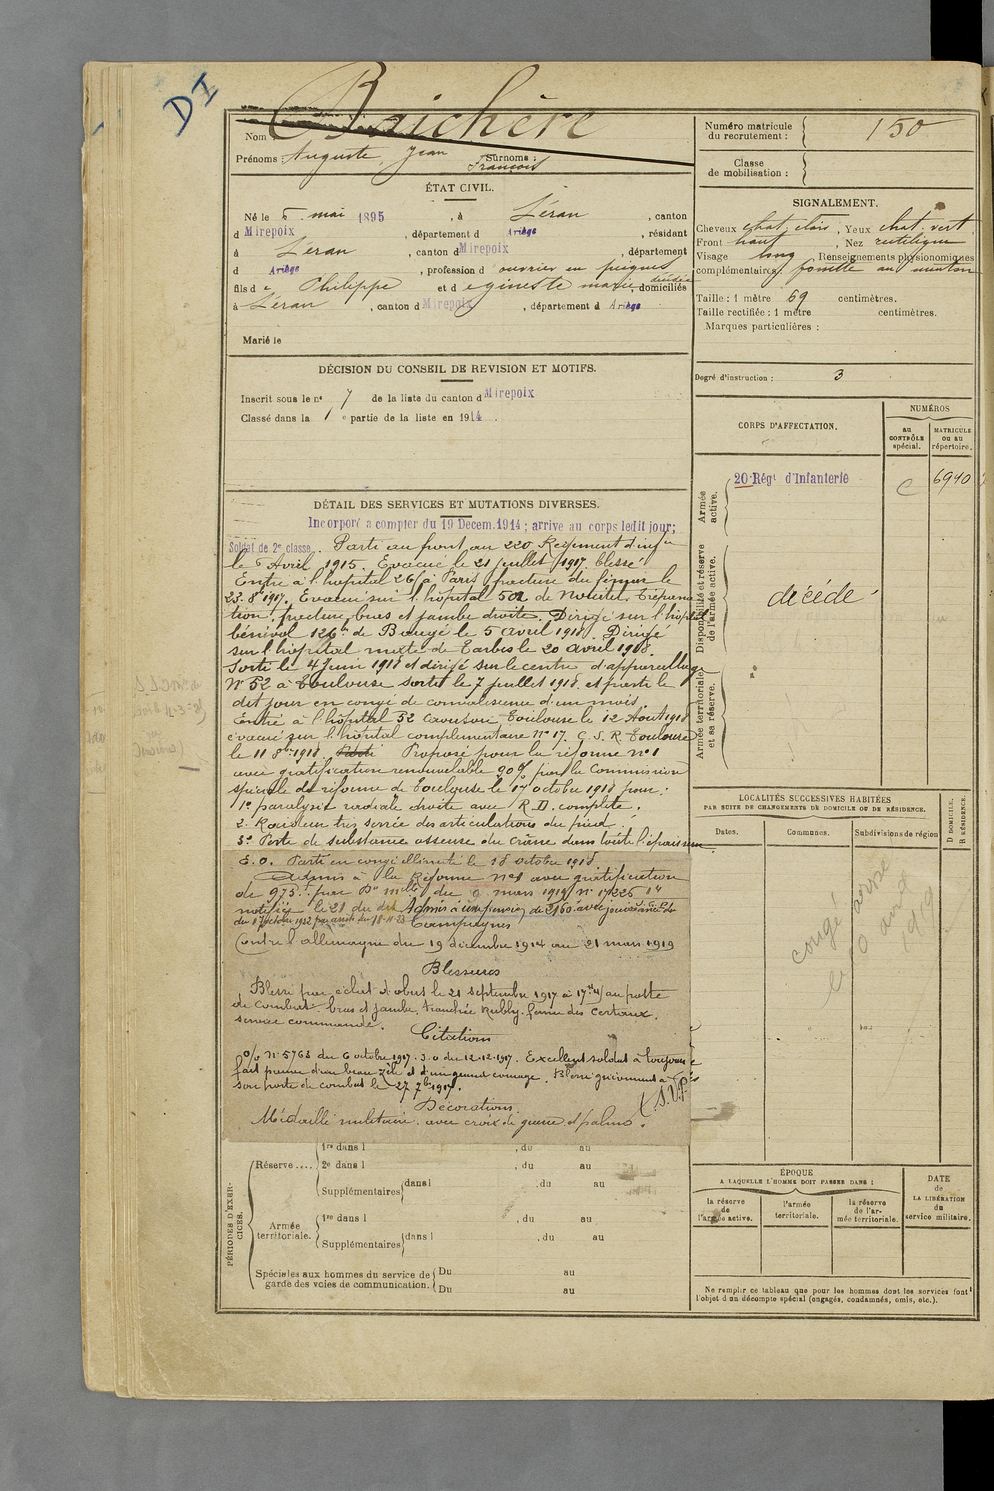 DI
Nom Baichère
Prénoms : Auguste, Jean Surnoms :
François
ÉTAT CIVIL.
Né le 6 mai 1895, à Léran, canton
d Mirepoix, département d Ariège, résidant
à Léran, canton d Mirepoix, département
d Ariège, profession d ouvrier en peignes
fils de Philippe et d egineste marie, domiciliés
à Léran, canton d Mirepoix, département d Ariège
Marié le
DÉCISION DU CONSEIL DE REVISION ET MOTIFS.
Inscrit sous le n° 7 de la liste du canton d Mirepoix
Classé dans la 1e partie de la liste en 1914.
DÉTAIL DES SERVICES ET MUTATIONS DIVERSES.
Incorporé a compter du 19 Decem. 1914 ; arrive au corps ledit jour;
Soldat de 2e classe. Parti au front au 220 Régiment d'inf
le 6 Avril 1915. Evacué le 21 juillet 1917 blessé
Entré à l'hopital 26 à Paris fracture du fémur le
23.8 1917. Evacué sur l'hôpital 502 de Trépana
tion, fracture bras et jambe droite. Dirigé sur l'hôpital
bénévol 126 de le 5 avril 1918. Dirigé
sur l'hopital mixte de Tarbes le 20 avril 1918.
Sorti le 4 Juin 1918 et dirigé sur le centre d'appareillage
N° 52 à Toulouse sortit le 7 juillet 1918 et parti le
dit jour en congé de convalescence d'un mois.
Entré à l'hôpital 52 Toulouse le 12 Aout 1918
évacué sur l'hôpital complementaire n° 17. C. S. R. Toulouse
le 11 8bre 1918 Proposé pour la réforme n° 1
avec gratification renouvelable 90% par la Commission
spéciale de réforme de Toulouse le 17 octobre 1918 pour :
1° paralysie radiale droite avec R. D. complète.
2° Raideur très serrée des articulations du pied.
3° Perte de substance osseuse du crâne dans toute l'épaisseur
E. O. Parti en congé illimité le 18 octobre 1918.
Admis à la Réforme n° 1 avec gratification
de 975 f par Don mlle du 9 mars 1919 n° 17226
notifiée le 21 du dit Admis à une pension de 2160 avec jouissance du
du 17 octobre 1922 par arrêté du 18-11-23 Campagnes
Contre l'allemagne du 19 décembre 1914 au 21 mars 1919
Blessures
Blessé par éclat d'obus le 21 septembre 1917 à 17h au poste
de combat. bras et jambe, tranchée ferme des
service commandé.
Citations
o/o N° 5763 du 6 octobre 1917. J. O du 12-12-1917. Excellent soldat a toujours
fait preuve d'un beau zèle et d'un grand courage. Blessé grièvement à
son poste de combat le 27 7bre 1917.
(S.V.P.
Décorations
Médaille militaire avec croix de guerre et palme.
PÉRIODES D'EXERCICES.
Réserve .... 1re dans l , du au
2e dans l , du au
Supplémentaires dans l , du au
Armée territoriale. 1re dans l , du au
Supplémentaires dans l , du au
Spéciales aux hommes du service de garde des voies de communication. Du au
Du au
Numéro matricule du recrutement : 150
Classe de mobilisation :
SIGNALEMENT.
Cheveux chat. clair, Yeux chat. vert
Front haut, Nez rectiligne
Visage long, Renseignements physionomiques
complémentaires fossette au menton
Taille : 1 mètre 69 centimètres.
Taille rectifiée : 1 mètre centimètres.
Marques particulières :
Degré d'instruction : 3
CORPS D'AFFECTATION.
NUMÉROS
AU CONTRÔLE spécial.
MATRICULE OU AU répertoire.
Armée active.
20 Régt d'Infanterie
C
6940
Disponibilité et réserve de l'armée active.
décédé
Armée territoriale et sa réserve.
LOCALITÉS SUCCESSIVES HABITÉES
PAR SUITE DE CHANGEMENTS DE DOMICILE OU DE RÉSIDENCE.
Dates. Communes. Subdivisions de région
D DOMICILE.
R RÉSIDENCE.
congé
1919
ÉPOQUE
A LAQUELLE L'HOMME DOIT PASSER DANS :
la réserve de l'armée active.
l'armée territoriale.
la réserve de l'armée territoriale.
DATE de LA LIBÉRATION du service militaire.
Ne remplir ce tableau que pour les hommes dont les services font
l'objet d'un décompte spécial (engagés, condamnés, omis, etc.).